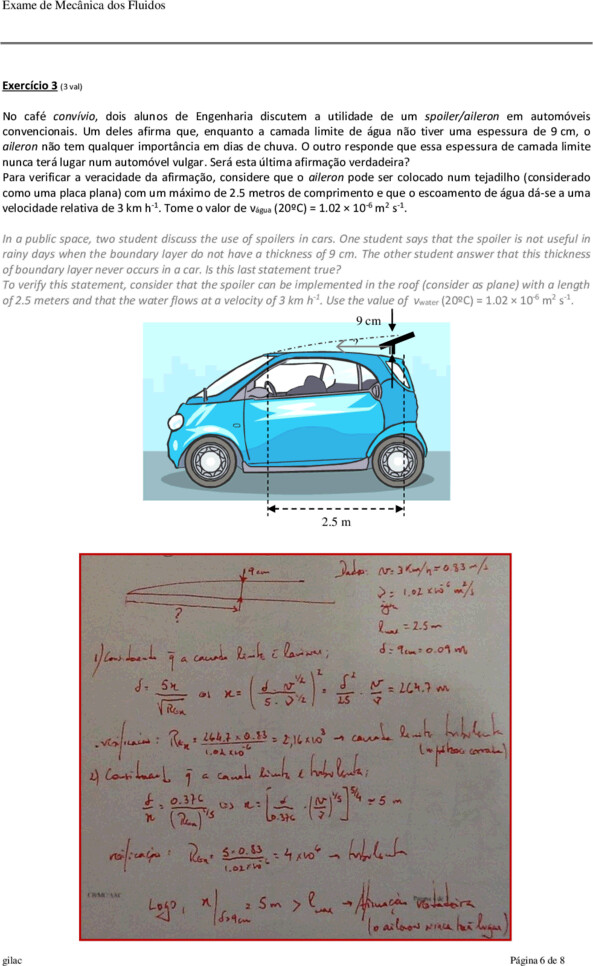 Exame de Mecânica dos Fluidos
Exercício 3 (3 val)
No café convívio, dois alunos de Engenharia discutem a utilidade de um spoiler/aileron em automóveis
convencionais. Um deles afirma que, enquanto a camada limite de água não tiver uma espessura de 9 cm, o
aileron não tem qualquer importância em dias de chuva. O outro responde que essa espessura de camada limite
nunca terá lugar num automóvel vulgar. Será esta última afirmação verdadeira?
Para verificar a veracidade da afirmação, considere que o aileron pode ser colocado num tejadilho (considerado
como uma placa plana) com um máximo de 2.5 metros de comprimento e que o escoamento de água dá-se a uma
velocidade relativa de 3 km h⁻¹. Tome o valor de νágua (20ºC) = 1.02 × 10⁻⁶ m² s⁻¹.
In a public space, two student discuss the use of spoilers in cars. One student says that the spoiler is not useful in
rainy days when the boundary layer do not have a thickness of 9 cm. The other student answer that this thickness
of boundary layer never occurs in a car. Is this last statement true?
To verify this statement, consider that the spoiler can be implemented in the roof (consider as plane) with a length
of 2.5 meters and that the water flows at a velocity of 3 km h⁻¹. Use the value of νwater (20ºC) = 1.02 × 10⁻⁶ m² s⁻¹.
9 cm
?
2.5 m
9 cm
?
Dados: v = 3 km/h = 0.83 m/s
ν = 1.02 × 10⁻⁶ m²/s
água
lmax = 2.5 m
δ = 9 cm = 0.09 m
1) Considerando q̄ a camada limite é laminar;
δ = 5x / √Rex ⇔ x = (δ · v^1/2 / 5 · ν^1/2)² = δ²/25 · v/ν = 264.7 m
verificação: Rex = 264.7 × 0.83 / 1.02 × 10⁻⁶ = 2,16 × 10⁸ → camada limite turbulenta
2) Considerando q̄ a camada limite é turbulenta;
δ/x = 0.376 / (Rex)^1/5 ⇔ x = [δ/0.376 · (v/ν)^1/5]^5/4 ≃ 5 m
verificação: Rex = 5 · 0.83 / 1.02 × 10⁻⁶ = 4 × 10⁶ → turbulenta
Logo, x|δ=9cm = 5 m > lmax → Afirmação verdadeira
(o aileron nunca terá lugar)
gilac
Página 6 de 8